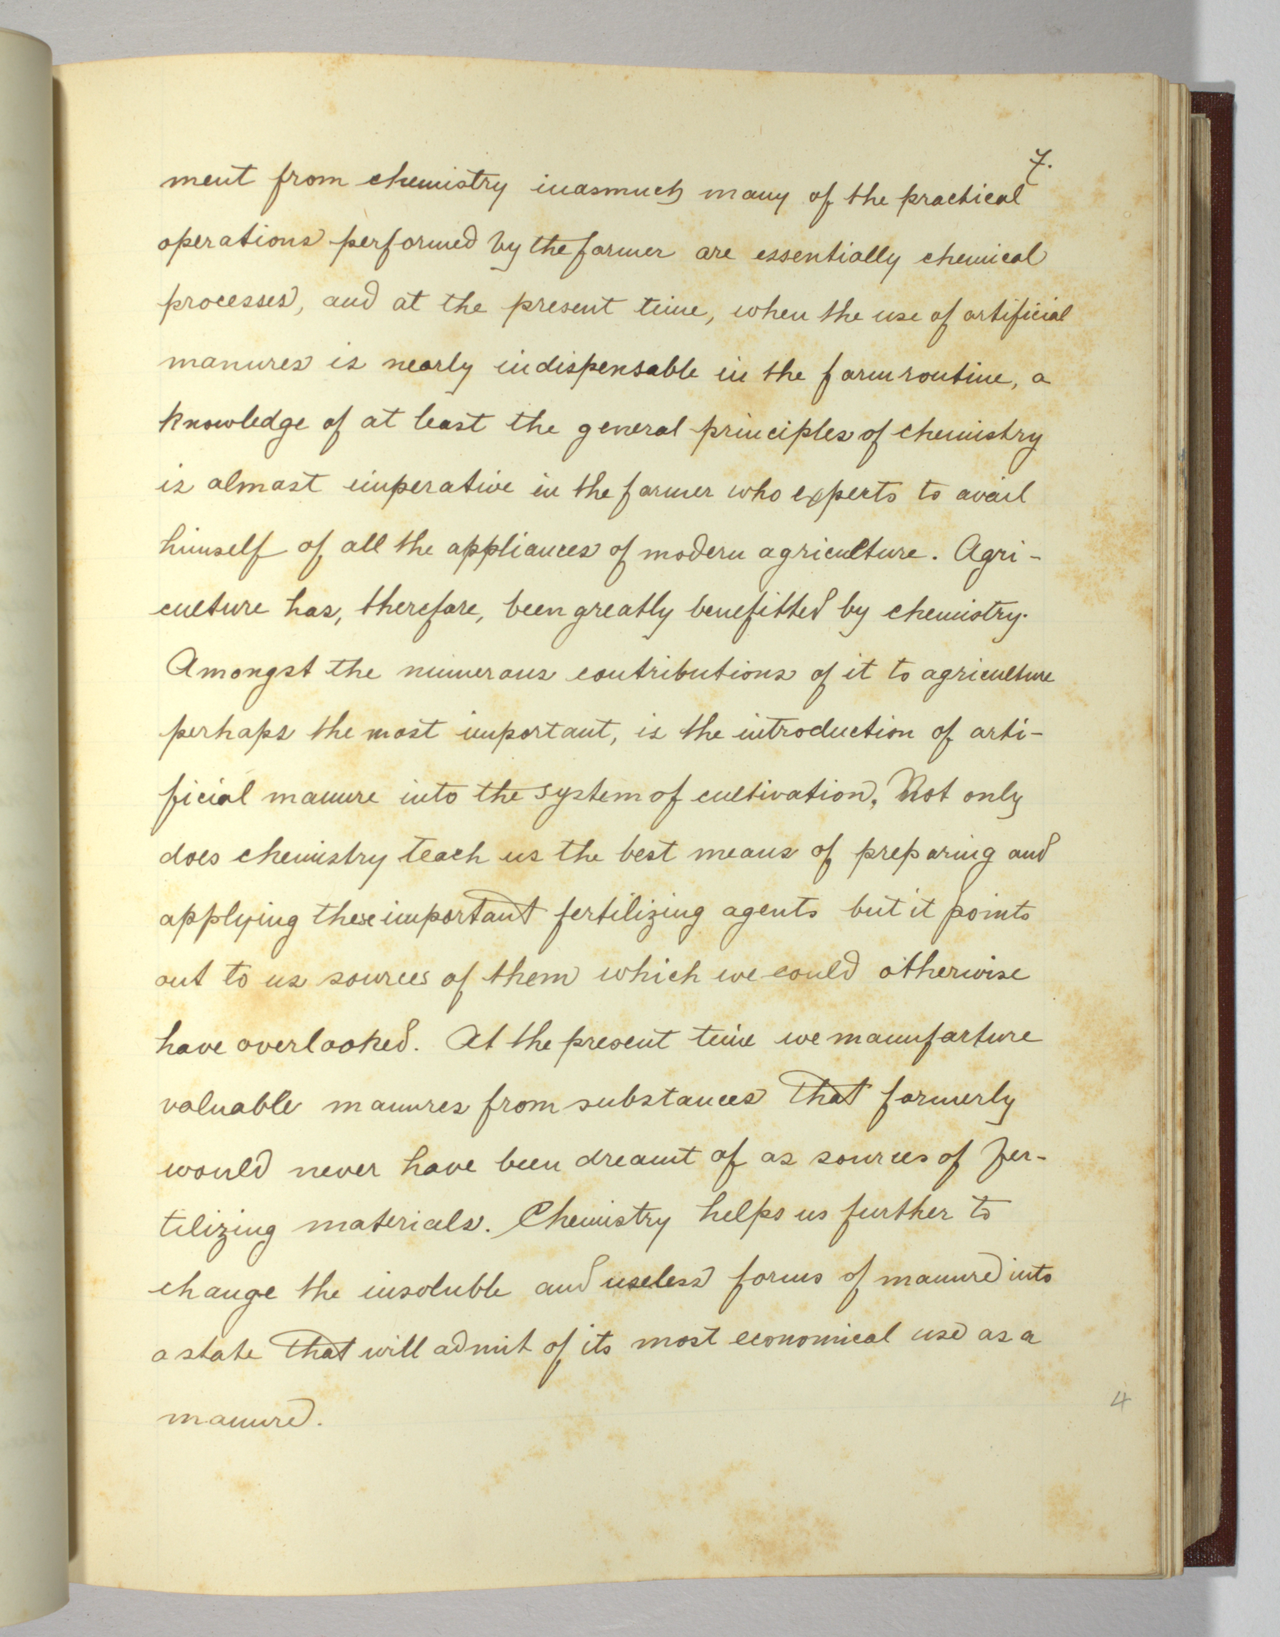 7.
ment from chemistry inasmuch many of the practical
operations performed by the farmer are essentially chemical
processes, and at the present time, when the use of artificial
manures is nearly indispensable in the farm routine, a
knowledge of at least the general principles of chemistry
is almost imperative in the farmer who experts to avail
himself of all the appliances of modern agriculture. Agri-
culture has, therefore, been greatly benefitted by chemistry.
Amongst the numerous contributions of it to agriculture
perhaps the most important, is the introduction of arti-
ficial manure into the system of cultivation. Not only
does chemistry teach us the best means of preparing and
applying these important fertilizing agents but it points
out to us sources of them which we could otherwise
have overlooked. At the present time we manufacture
valuable manures from substances that formerly
would never have been dreamt of as sources of fer-
tilizing materials. Chemistry helps us further to
change the insoluble and useless forms of manure into
a state that will admit of its most economical use as a
manure.
4